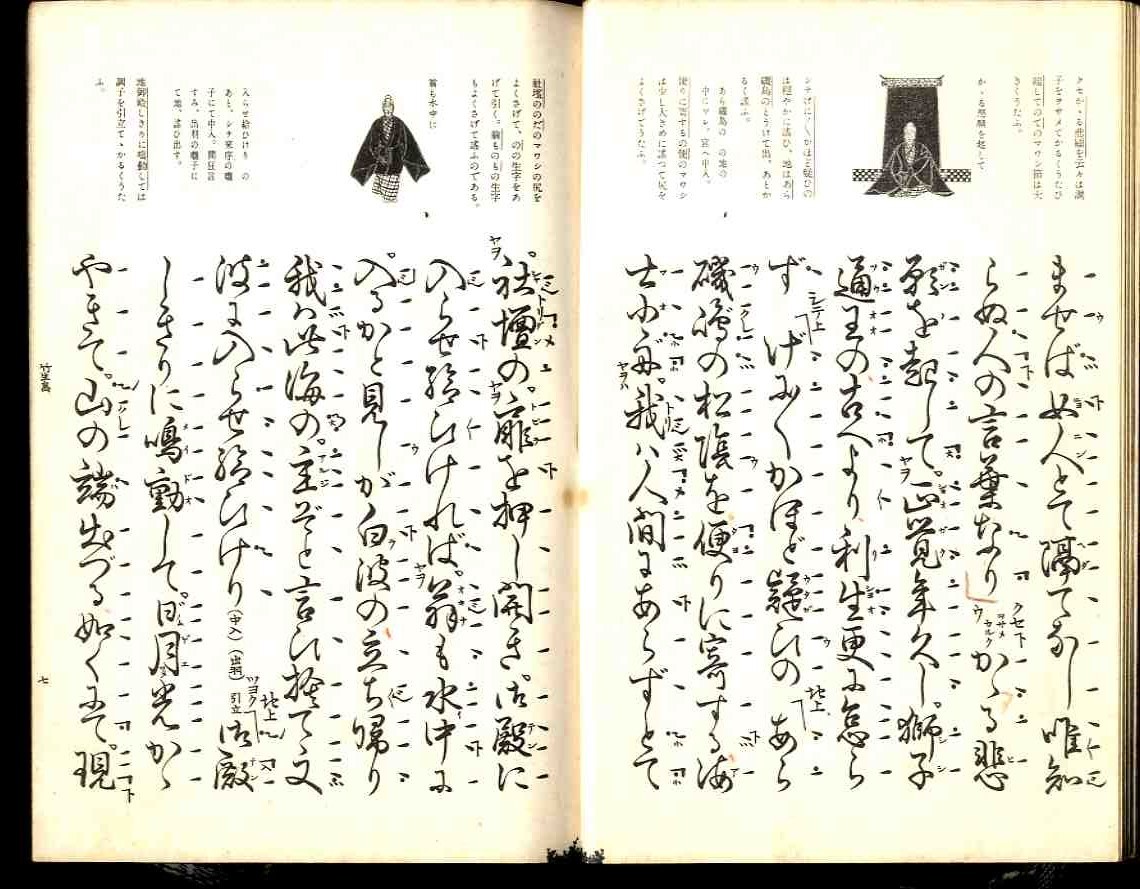 クセかゝる悲願を云々は調
子をヲサメてかるくうたひ
起してのてのマワシ節は大
きくうたふ。
かゝる悲願を起して
シテげに〱かほど疑ひの
は穏やかに謡ひ、地はあら
磯島のとうけて出、あとか
るく謡ふ。
あら磯島の の地の
中に 宮へ中入。
便りに寄するの便のマワシ
は少し大きめに謡つて尻を
よくさげてうたふ。
ませば女人とて隔てなし唯知
らぬ人の言葉なり クセ下 ヲサメ カルク かゝる悲
願を起して。正覚年久し。獅子
通王の古へより利生更に怠ら
ず シテ上 げに〱かほど疑ひの 地上 あら
磯島の松陰を便りに寄する海
士小舟。我ハ人間にあらずとて
社壇ののだのマワシの尻を
よくさげて、のの生字をあ
げて引く。翁ものもの生字
もよくさげて謡ふのである。
翁も水中に
入らせ給ひけり の
あと、シテ來序の囃
子にて中入。間狂言
すみ、出羽の囃子に
て地、謡ひ出す。
地御殿しきりに鳴動しては
調子を引立てゝかるくうた
ふ。
社壇の。扉を押し開き。御殿に
入らせ給ひければ。翁も水中に
入るかと見しが白波の立ち帰り
我ハ此海の。主ぞと言ひ捨て又
波に入らせ給ひけり (中入) (出羽) ツヨク 引立 地上 御殿
しきりに鳴動して。日月光かゝ
やきて。山の端出づる如くにて。現
竹生島
七